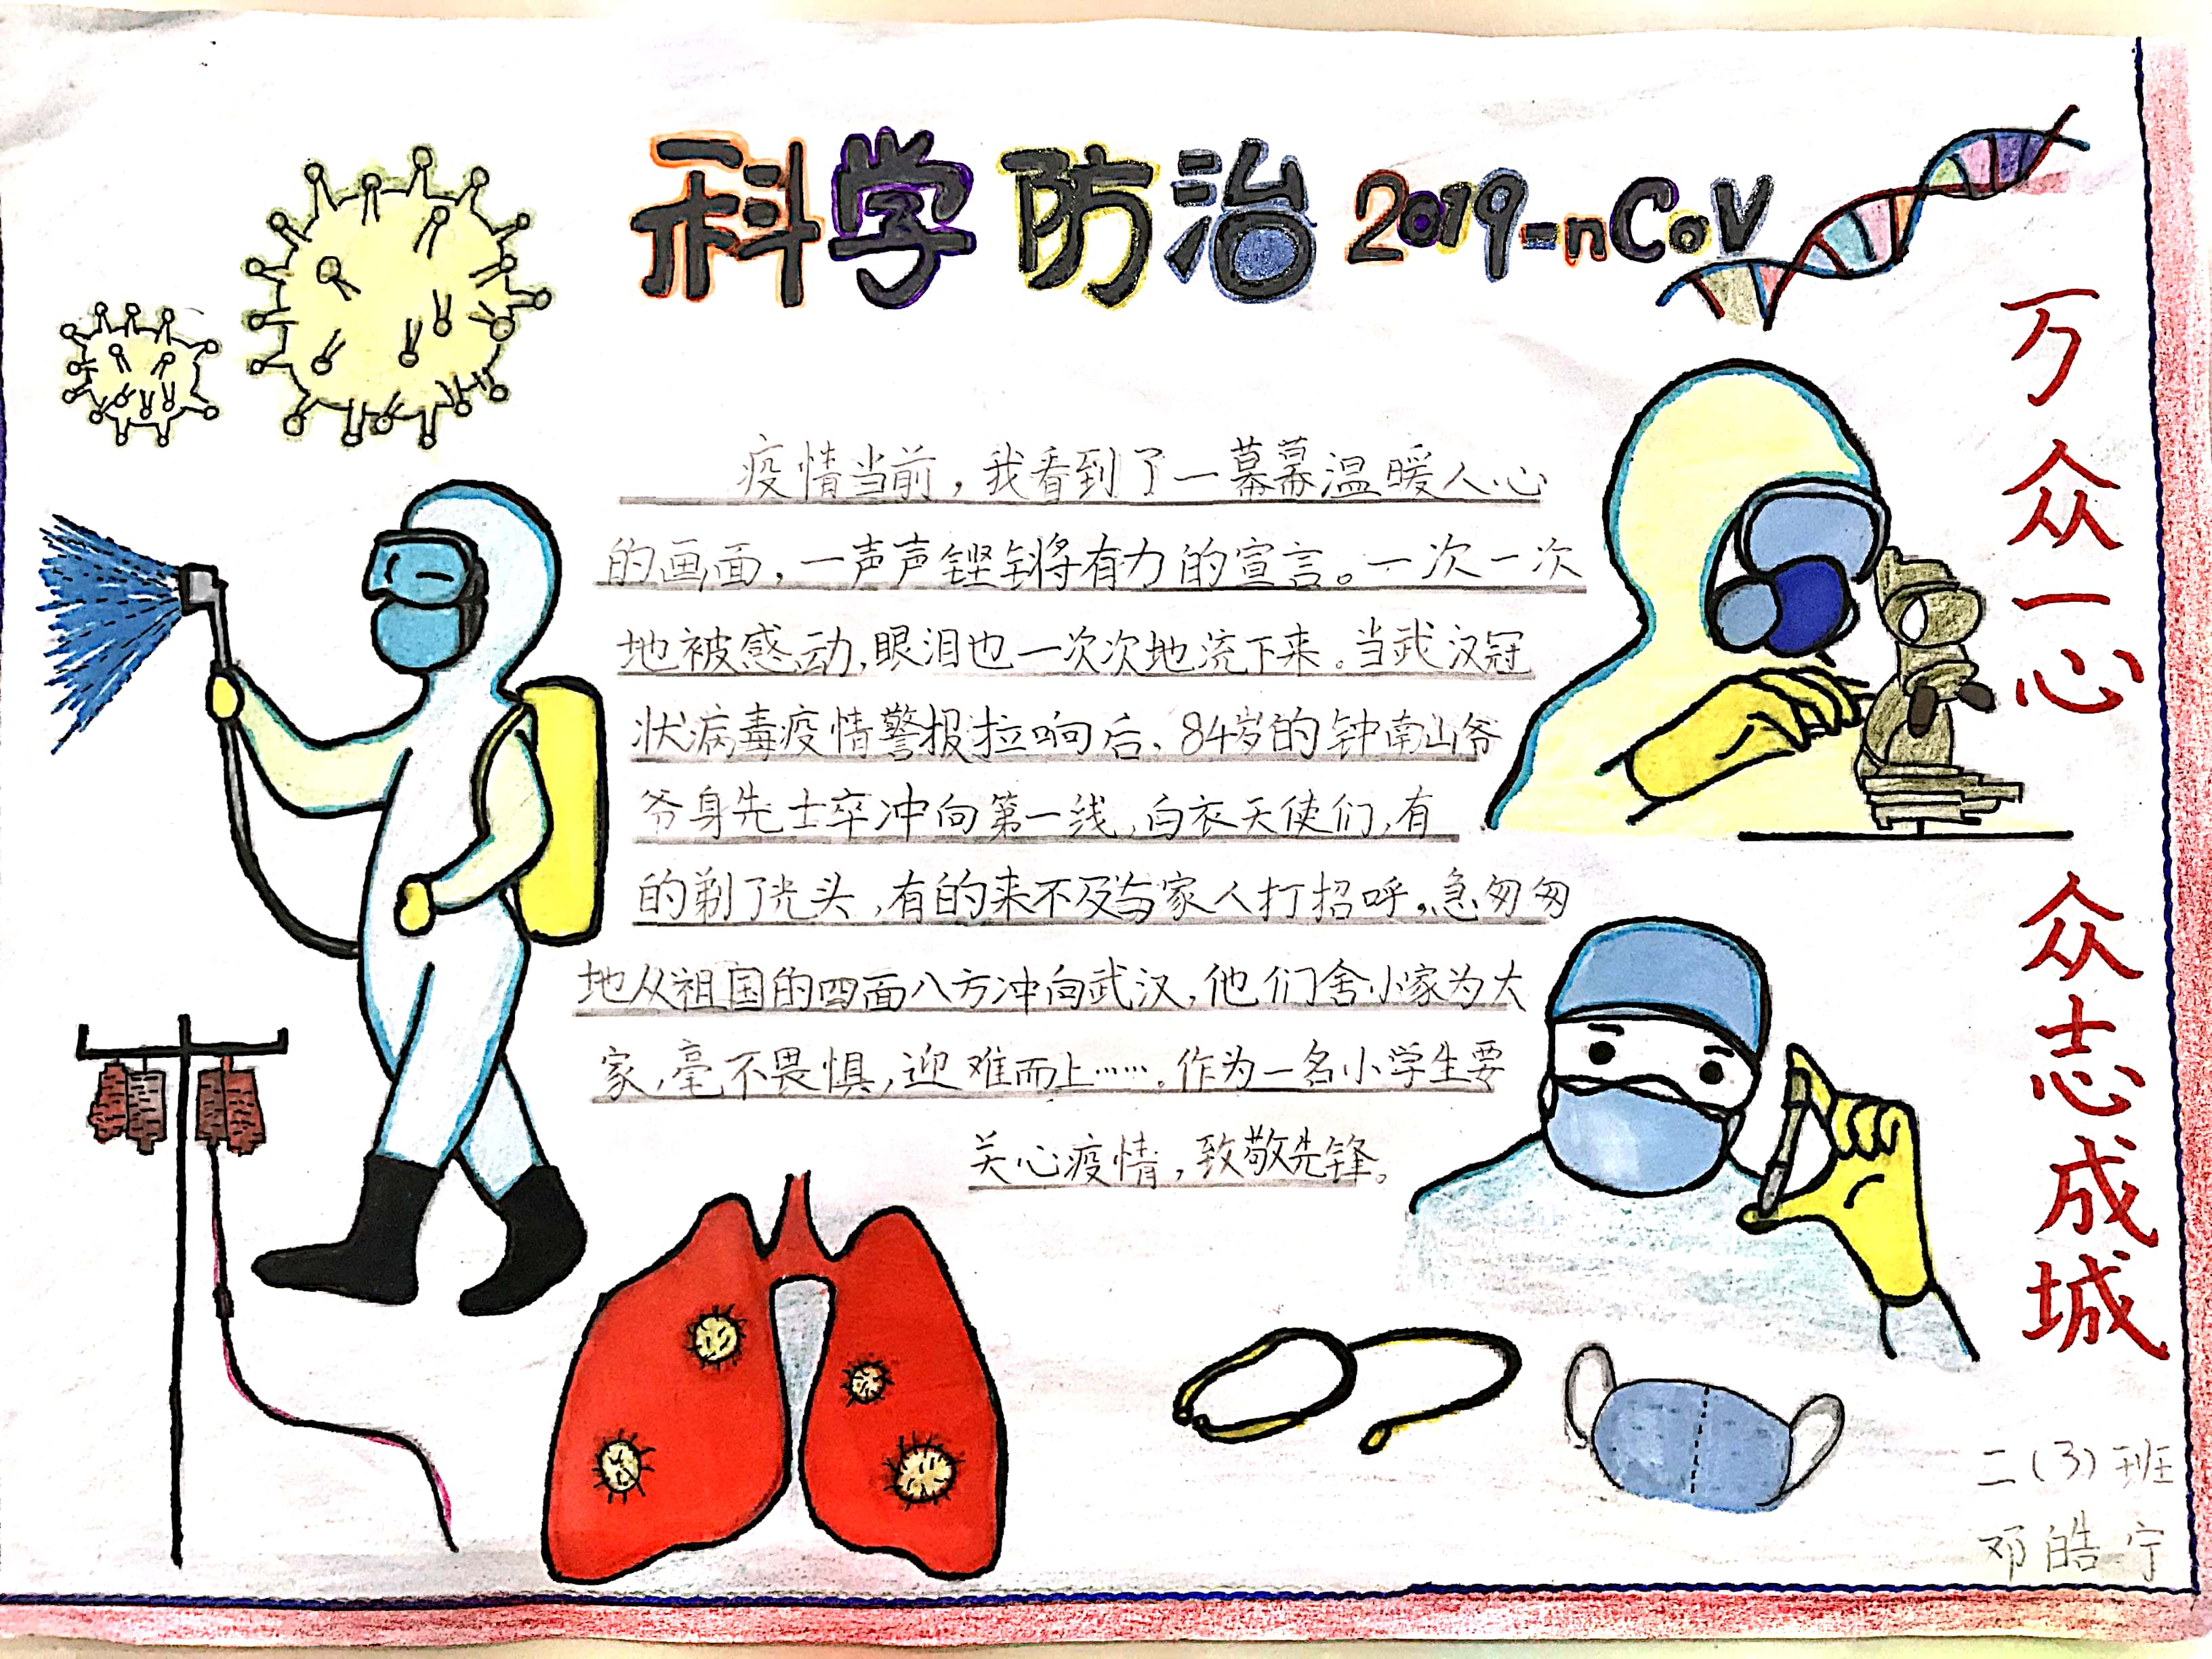 科学防治2019-nCoV
疫情当前，我看到了一幕幕温暖人心
的画面，一声声铿锵有力的宣言。一次一次
地被感动，眼泪也一次次地流下来。当武汉冠
状病毒疫情警报拉响后，84岁的钟南山爷
爷身先士卒冲向第一线，白衣天使们，有
的剃了光头，有的来不及与家人打招呼。急匆匆
地从祖国的四面八方冲向武汉，他们舍小家为大
家，毫不畏惧，迎难而上……。作为一名小学生要
关心疫情，致敬先锋。
万众一心
众志成城
二（3）班
邓皓宁